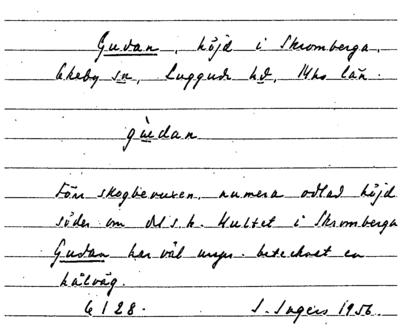 Gudan, höjd i Skromberga,
Ekeby sn, Luggude hd, Mhs län.
gu̇dan
Förr skogbevuxen, numera odlad höjd
söder om det s.k. Hultet i Skromberga
Gudan har väl urspr. betecknat en
hålväg.
6128.
S. Ingers 1956.